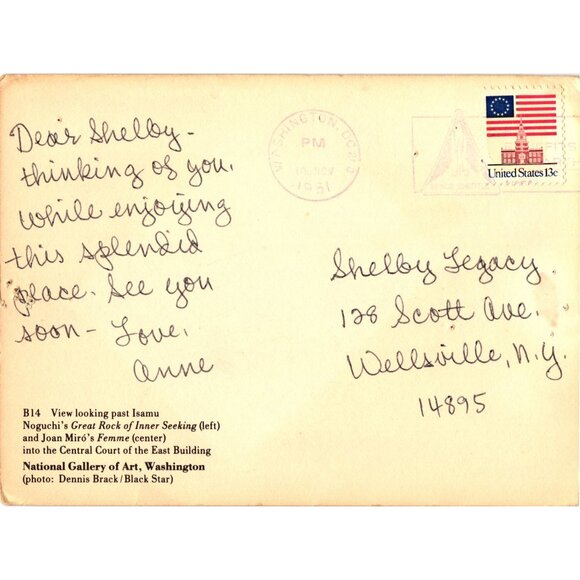 Dear Shelby-
thinking of you.
while enjoying
this splendid
place. See you
soon- Love,
Anne
B14 View looking past Isamu
Noguchi's Great Rock of Inner Seeking (left)
and Joan Miró's Femme (center)
into the Central Court of the East Building
National Gallery of Art, Washington
(photo: Dennis Brack/Black Star)
WASHINGTON, DC
PM
NOV
1981
United States 13c
Shelby Legacy
128 Scott Ave.
Wellsville, N.Y.
14895